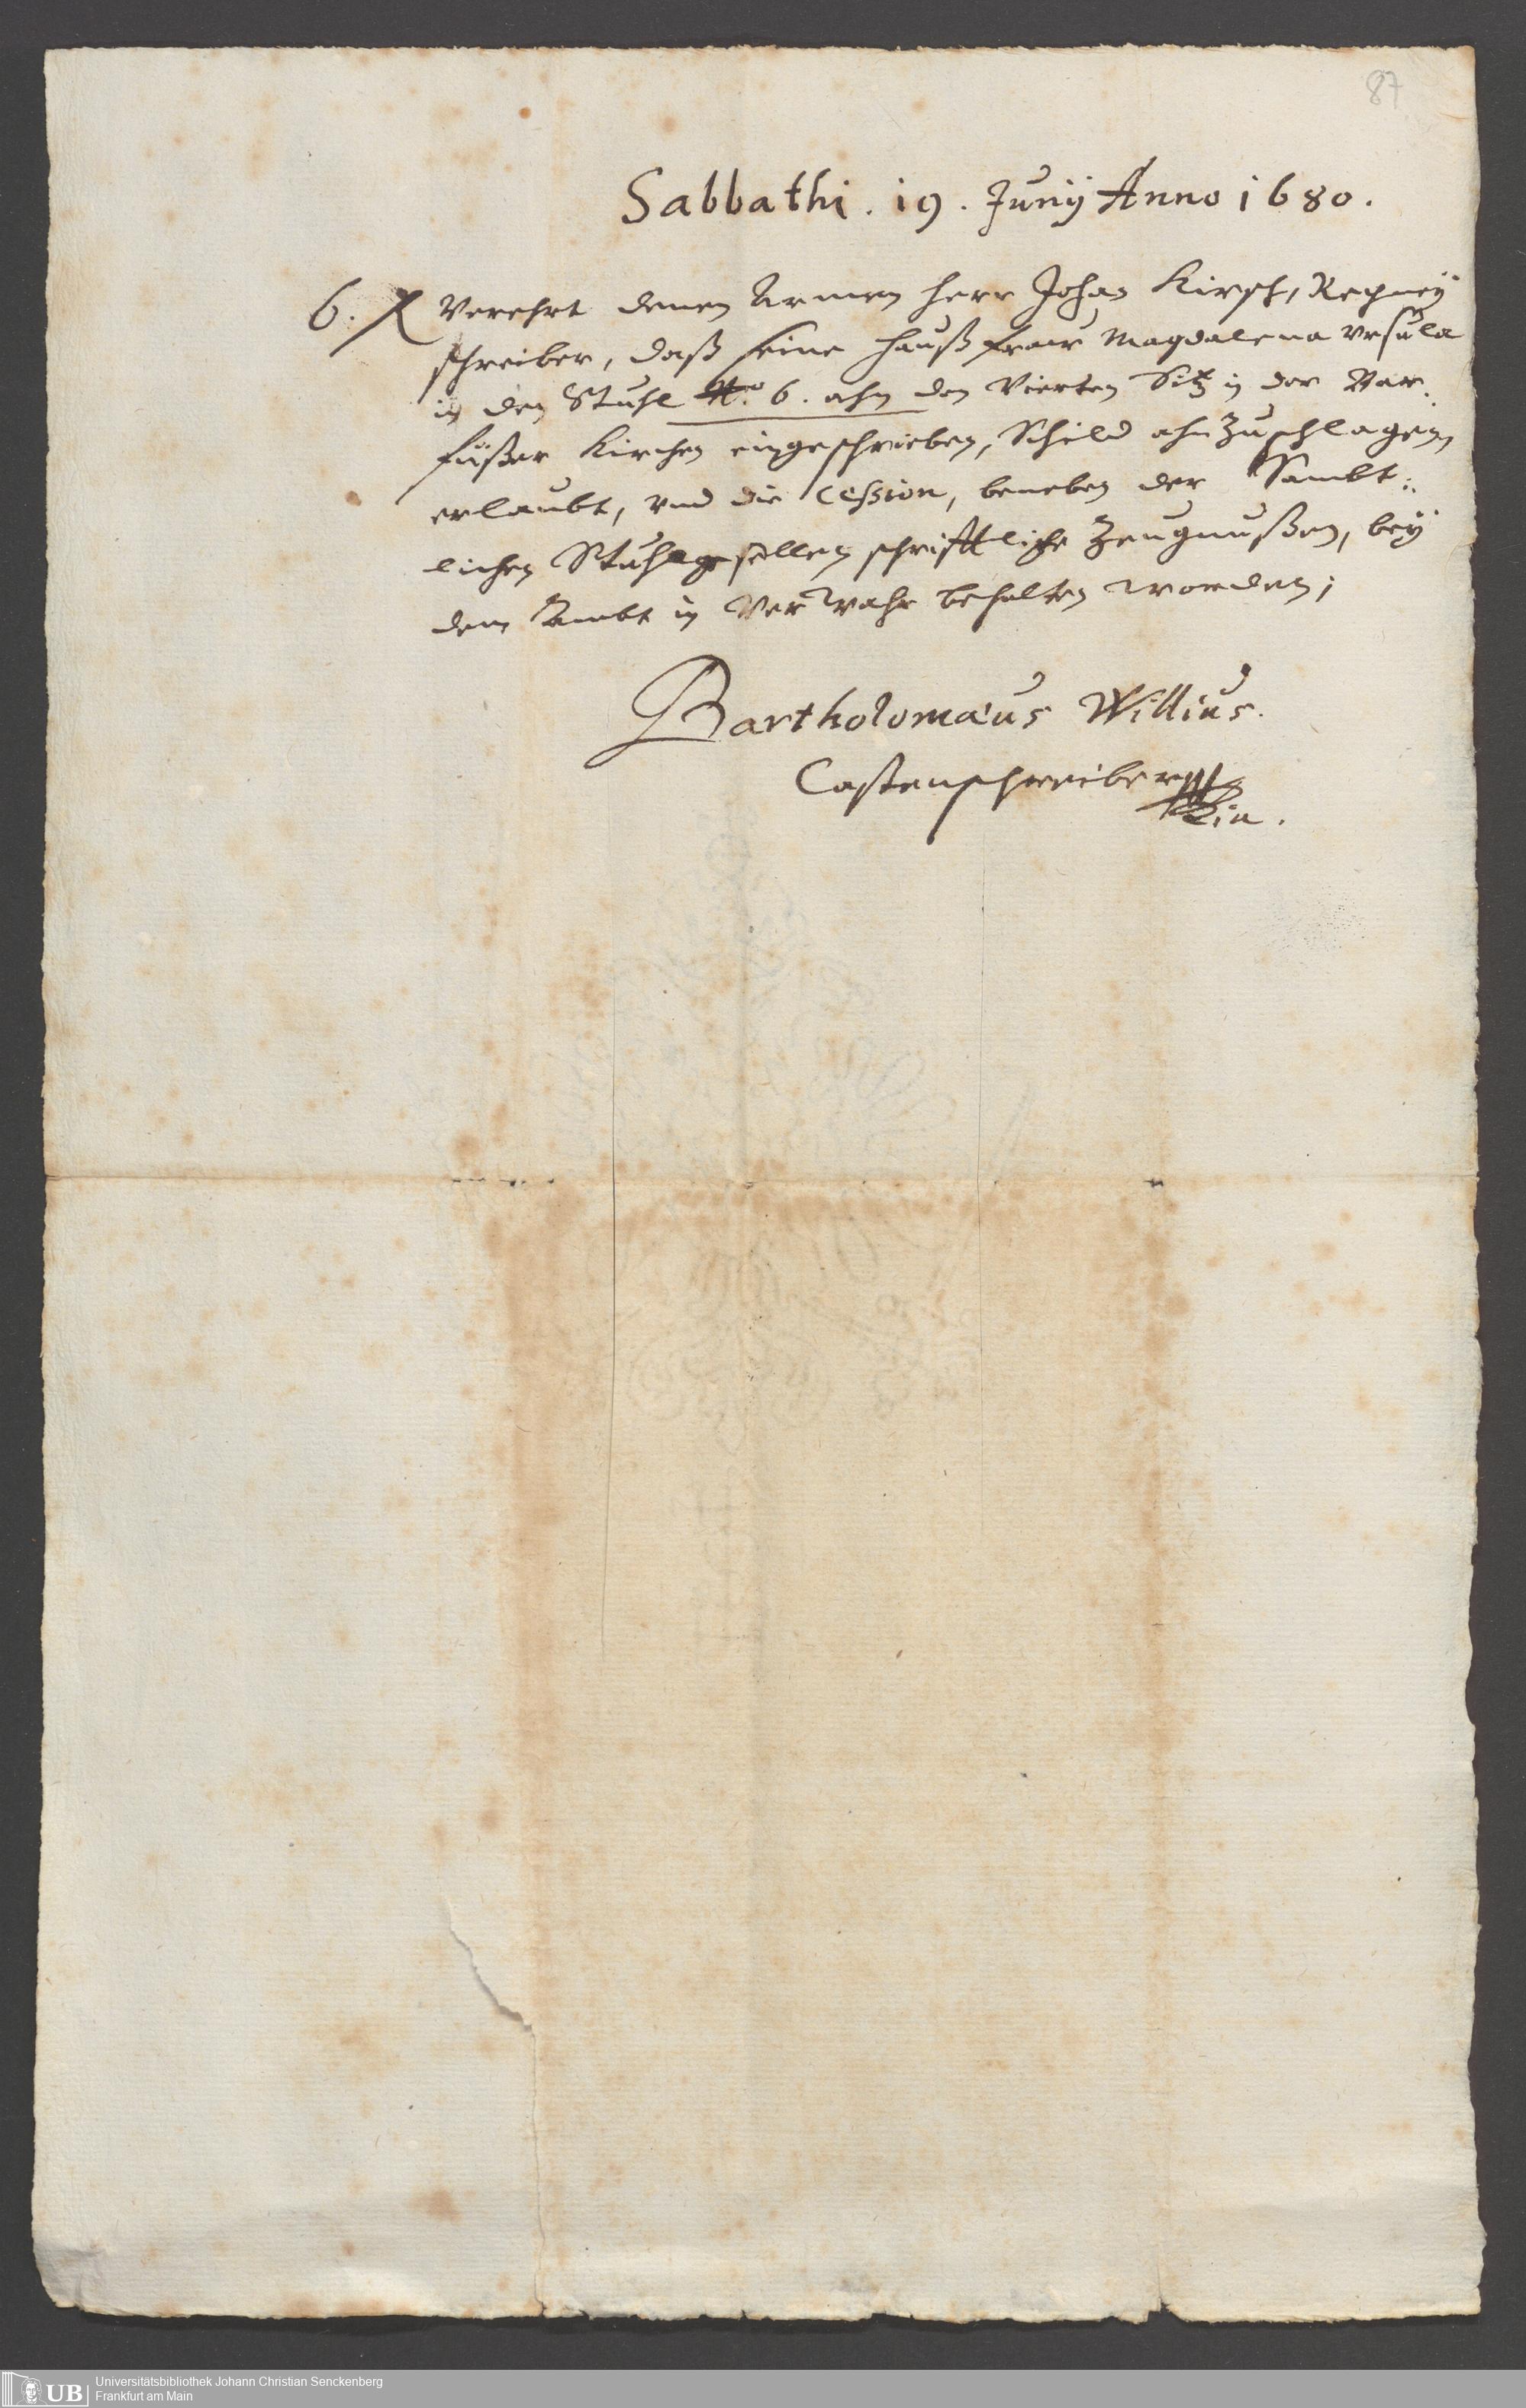 87
Sabbathi. 19. Junÿ Anno 1680.
6. Verehrt denen Armen Herr Johan Kirsch, Recheneÿ
schreiber, daß seine Haußfraw Magdalena Ursula
in den Stuhl No. 6. ahn den Vierten Sitz in der Bar.
füßer Kirchen eingeschrieben, Schild ahnzuschlagen
erlaubt, und die Cession, beneben der Sambt:
lichen Stuhlgesellen schrifftliche Zeugnußen, beÿ
dem Ambt in Verwahr behalten worden;
Bartholomäus Willius.
Castenschreiber
UB
Universitätsbibliothek Johann Christian Senckenberg
Frankfurt am Main